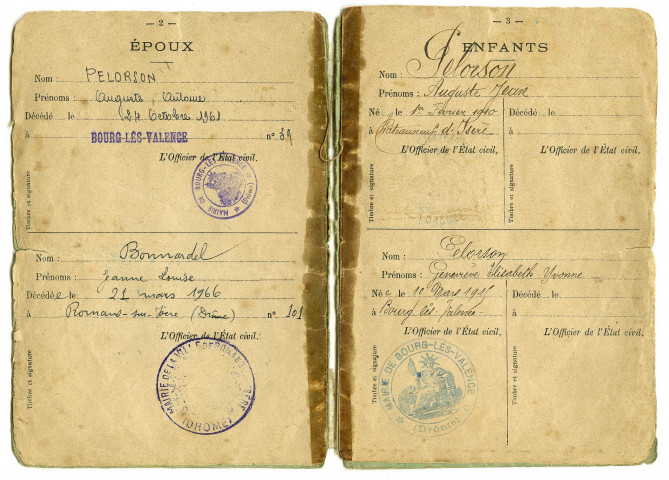 — 2 —
ÉPOUX
Nom : PELORSON
Prénoms : Auguste, Antoine
Décédé le 24 Octobre 1961
à BOURG-LÈS-VALENCE n° 39
L'Officier de l'État civil,
Timbre et signature
MAIRIE DE BOURG-LÈS-VALENCE (Drôme)
Nom : Bonnardel
Prénoms : Jeanne Louise
Décédée le 21 mars 1966
à Romans-sur-Isère (Drôme) n° 101
L'Officier de l'État civil,
Timbre et signature
MAIRIE DE LA VILLE DE ROMANS
(DROME)
— 3 —
ENFANTS
Nom : Pelorson
Prénoms : Auguste Jean
Né le 1er Février 1910
à Châteauneuf d'Isère
L'Officier de l'État civil,
Timbre et signature
Décédé le
à
L'Officier de l'État civil,
Nom : Pelorson
Prénoms : Geneviève Elisabeth Yvonne
Née le 10 Mars
à Bourg-lès-Valence
L'Officier de l'État civil,
Timbre et signature
MAIRIE DE BOURG-LÈS-VALENCE
(Drôme)
Décédé le
à
L'Officier de l'État civil,